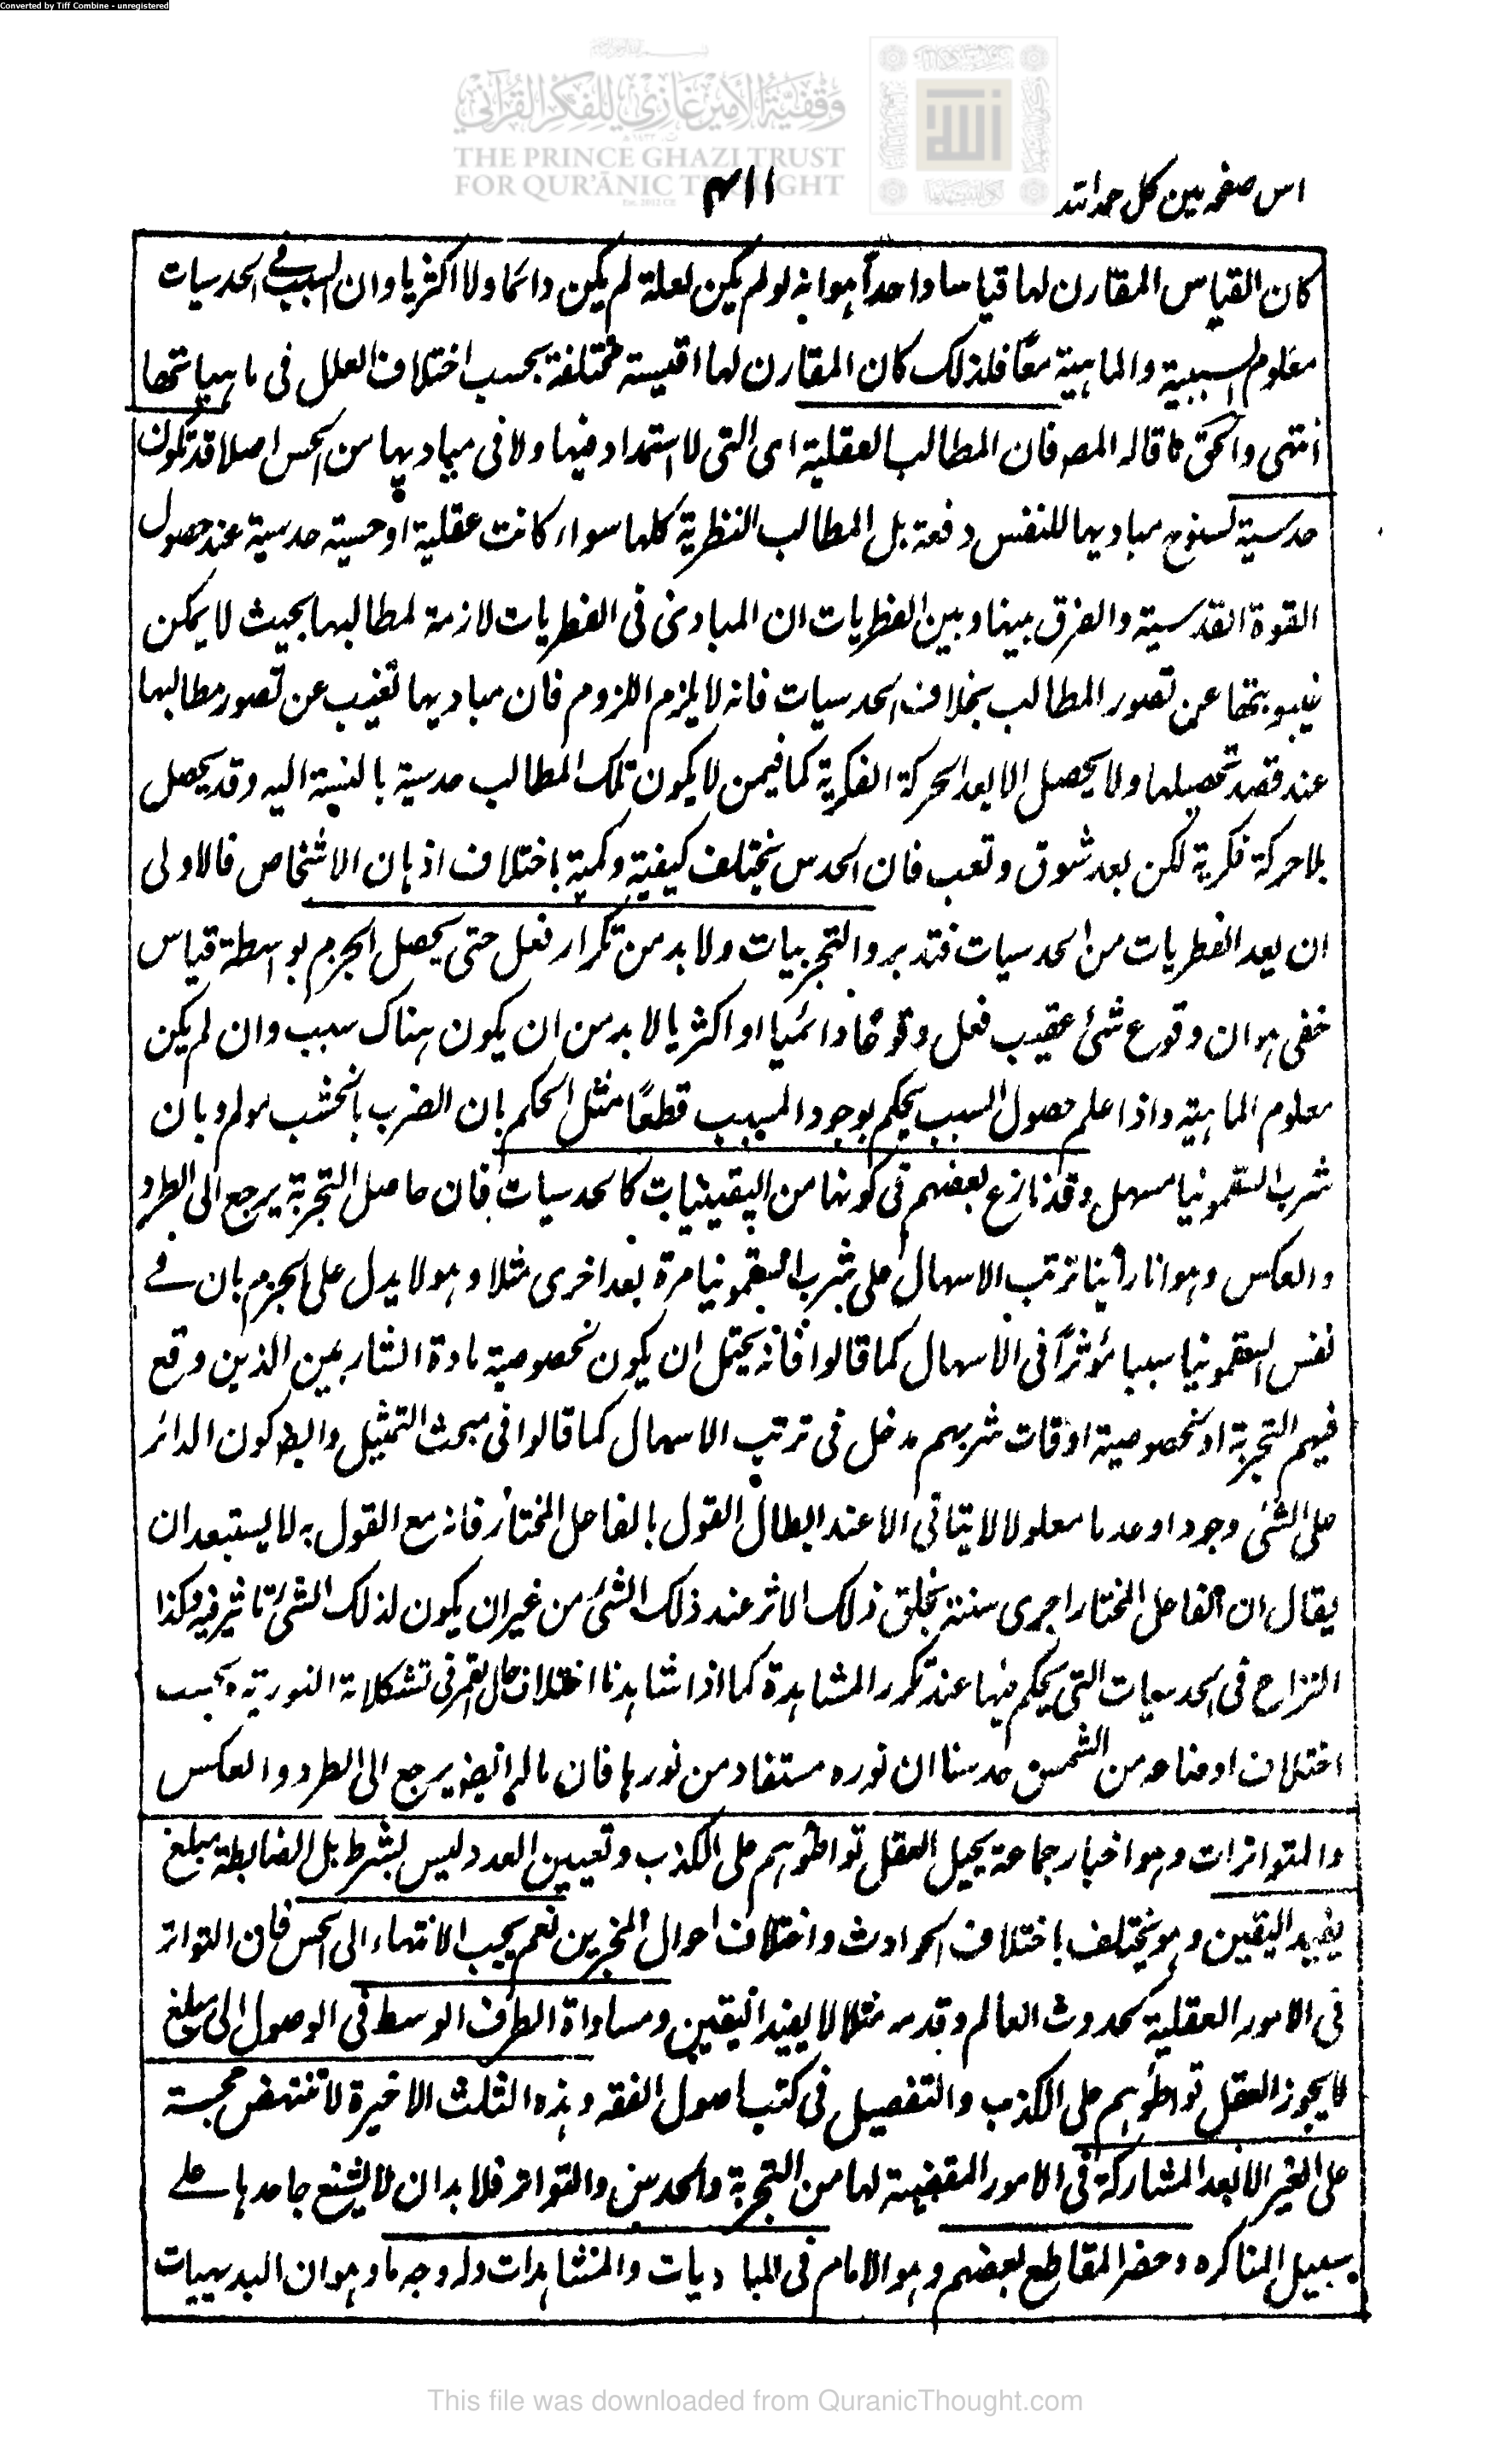 Converted by Tiff Combine - unregistered
وقفية الأمير غازي للفكر القرآني
THE PRINCE GHAZI TRUST
FOR QUR'ĀNIC THOUGHT
اس صفحہ مین کل حمد اللہ
٣١١
كان القياس المقارن لها قياسا واحدا هو انه لو لم يكن لعلة لم يكن دائما ولا اكثريا وان السبب فى الحدسيات
معلوم السببية والماهية معا فلذلك كان المقارن لها اقيسة مختلفة بحسب اختلاف العلل فى ماهياتها
انتهى والحق ما قاله المصـ فان المطالب العقلية اى التى لا استمداد فيها ولا فى مباديها من الحس اصلا قد تكون
حدسية لسنوح مباديها للنفس دفعة بل المطالب النظرية كلها سواء كانت عقلية او حسية حدسية عند حصول
القوة القدسية والفرق بينها وبين الفطريات ان المبادى فى الفطريات لازمة لمطالبها بحيث لا يمكن
غيبوبتها عن تصور المطالب بخلاف الحدسيات فانه لا يلزم اللزوم فان مباديها تغيب عن تصور مطالبها
عند قصد تحصيلها ولا يحصل الا بعد الحركة الفكرية كما فيمن لا يكون تلك المطالب حدسية بالنسبة اليه وقد يحصل
بلا حركة فكرية لكن بعد شوق وتعب فان الحدس يختلف كيفية وكمية باختلاف اذهان الاشخاص فالاولى
ان يعد الفطريات من الحدسيات فتدبر والتجربيات ولا بد من تكرار فعل حتى يحصل الجزم بواسطة قياس
خفى هو ان وقوع شئ عقيب فعل وقوعا دائميا او اكثريا لا بد من ان يكون هناك سبب وان لم يكن
معلوم الماهية واذا علم حصول السبب يحكم بوجود المسبب قطعا مثل الحكم بان الضرب بالخشب مولم وبان
شرب السقمونيا مسهل وقد نازع بعضهم فى كونها من اليقينيات كالحدسيات فان حاصل التجربة يرجع الى الطرد
والعكس وهو انا راينا ترتب الاسهال على شرب السقمونيا مرة بعد اخرى مثلا وهو لا يدل على الجزم بان فى
نفس السقمونيا سببا مؤثرا فى الاسهال كما قالوا فانه يحتمل ان يكون لخصوصية مادة الشاربين الذين وقع
فيهم التجربة او لخصوصية اوقات شربهم مدخل فى ترتب الاسهال كما قالوا فى مبحث التمثيل وايضا كون الدائر
على الشئ وجودا وعدما معلولا لا يتاتى الا عند ابطال القول بالفاعل المختار فانه مع القول به لا يستبعد ان
يقال ان الفاعل المختار اجرى سنته بخلق ذلك الاثر عند ذلك الشئ من غير ان يكون لذلك الشئ تاثير فيه وكذا
النزاع فى الحدسيات التى يحكم فيها عند تكرر المشاهدة كما اذا شاهدنا اختلاف حال القمر فى تشكلاته النورية بحسب
اختلاف اوضاعه من الشمس حدسنا ان نوره مستفاد من نورها فان ماله ايضا يرجع الى الطرد والعكس
والمتواترات وهو اخبار جماعة يحيل العقل تواطئهم على الكذب وتعيين العدد ليس بشرط بل الضابطة مبلغ
يفيد اليقين وهو يختلف باختلاف الحوادث واختلاف احوال المخبرين نعم يجب الانتهاء الى الحس فان التواتر
فى الامور العقلية كحدوث العالم وقدمه مثلا لا يفيد اليقين ومساواة الطرف الوسط فى الوصول الى مبلغ
لا يجوز العقل تواطئهم على الكذب والتفصيل فى كتب اصول الفقه وهذه الثلث الاخيرة لا تنتهض حجة
على الغير الا بعد المشاركة فى الامور المقتضية لها من التجربة والحدس والتواتر فلا بد ان لا يشنع جاحدها على
سبيل المناكرة وحصر المقاطع بعضهم وهو الامام فى البديهيات والمشاهدات وله وجه ما وهو ان البديهيات
This file was downloaded from QuranicThought.com